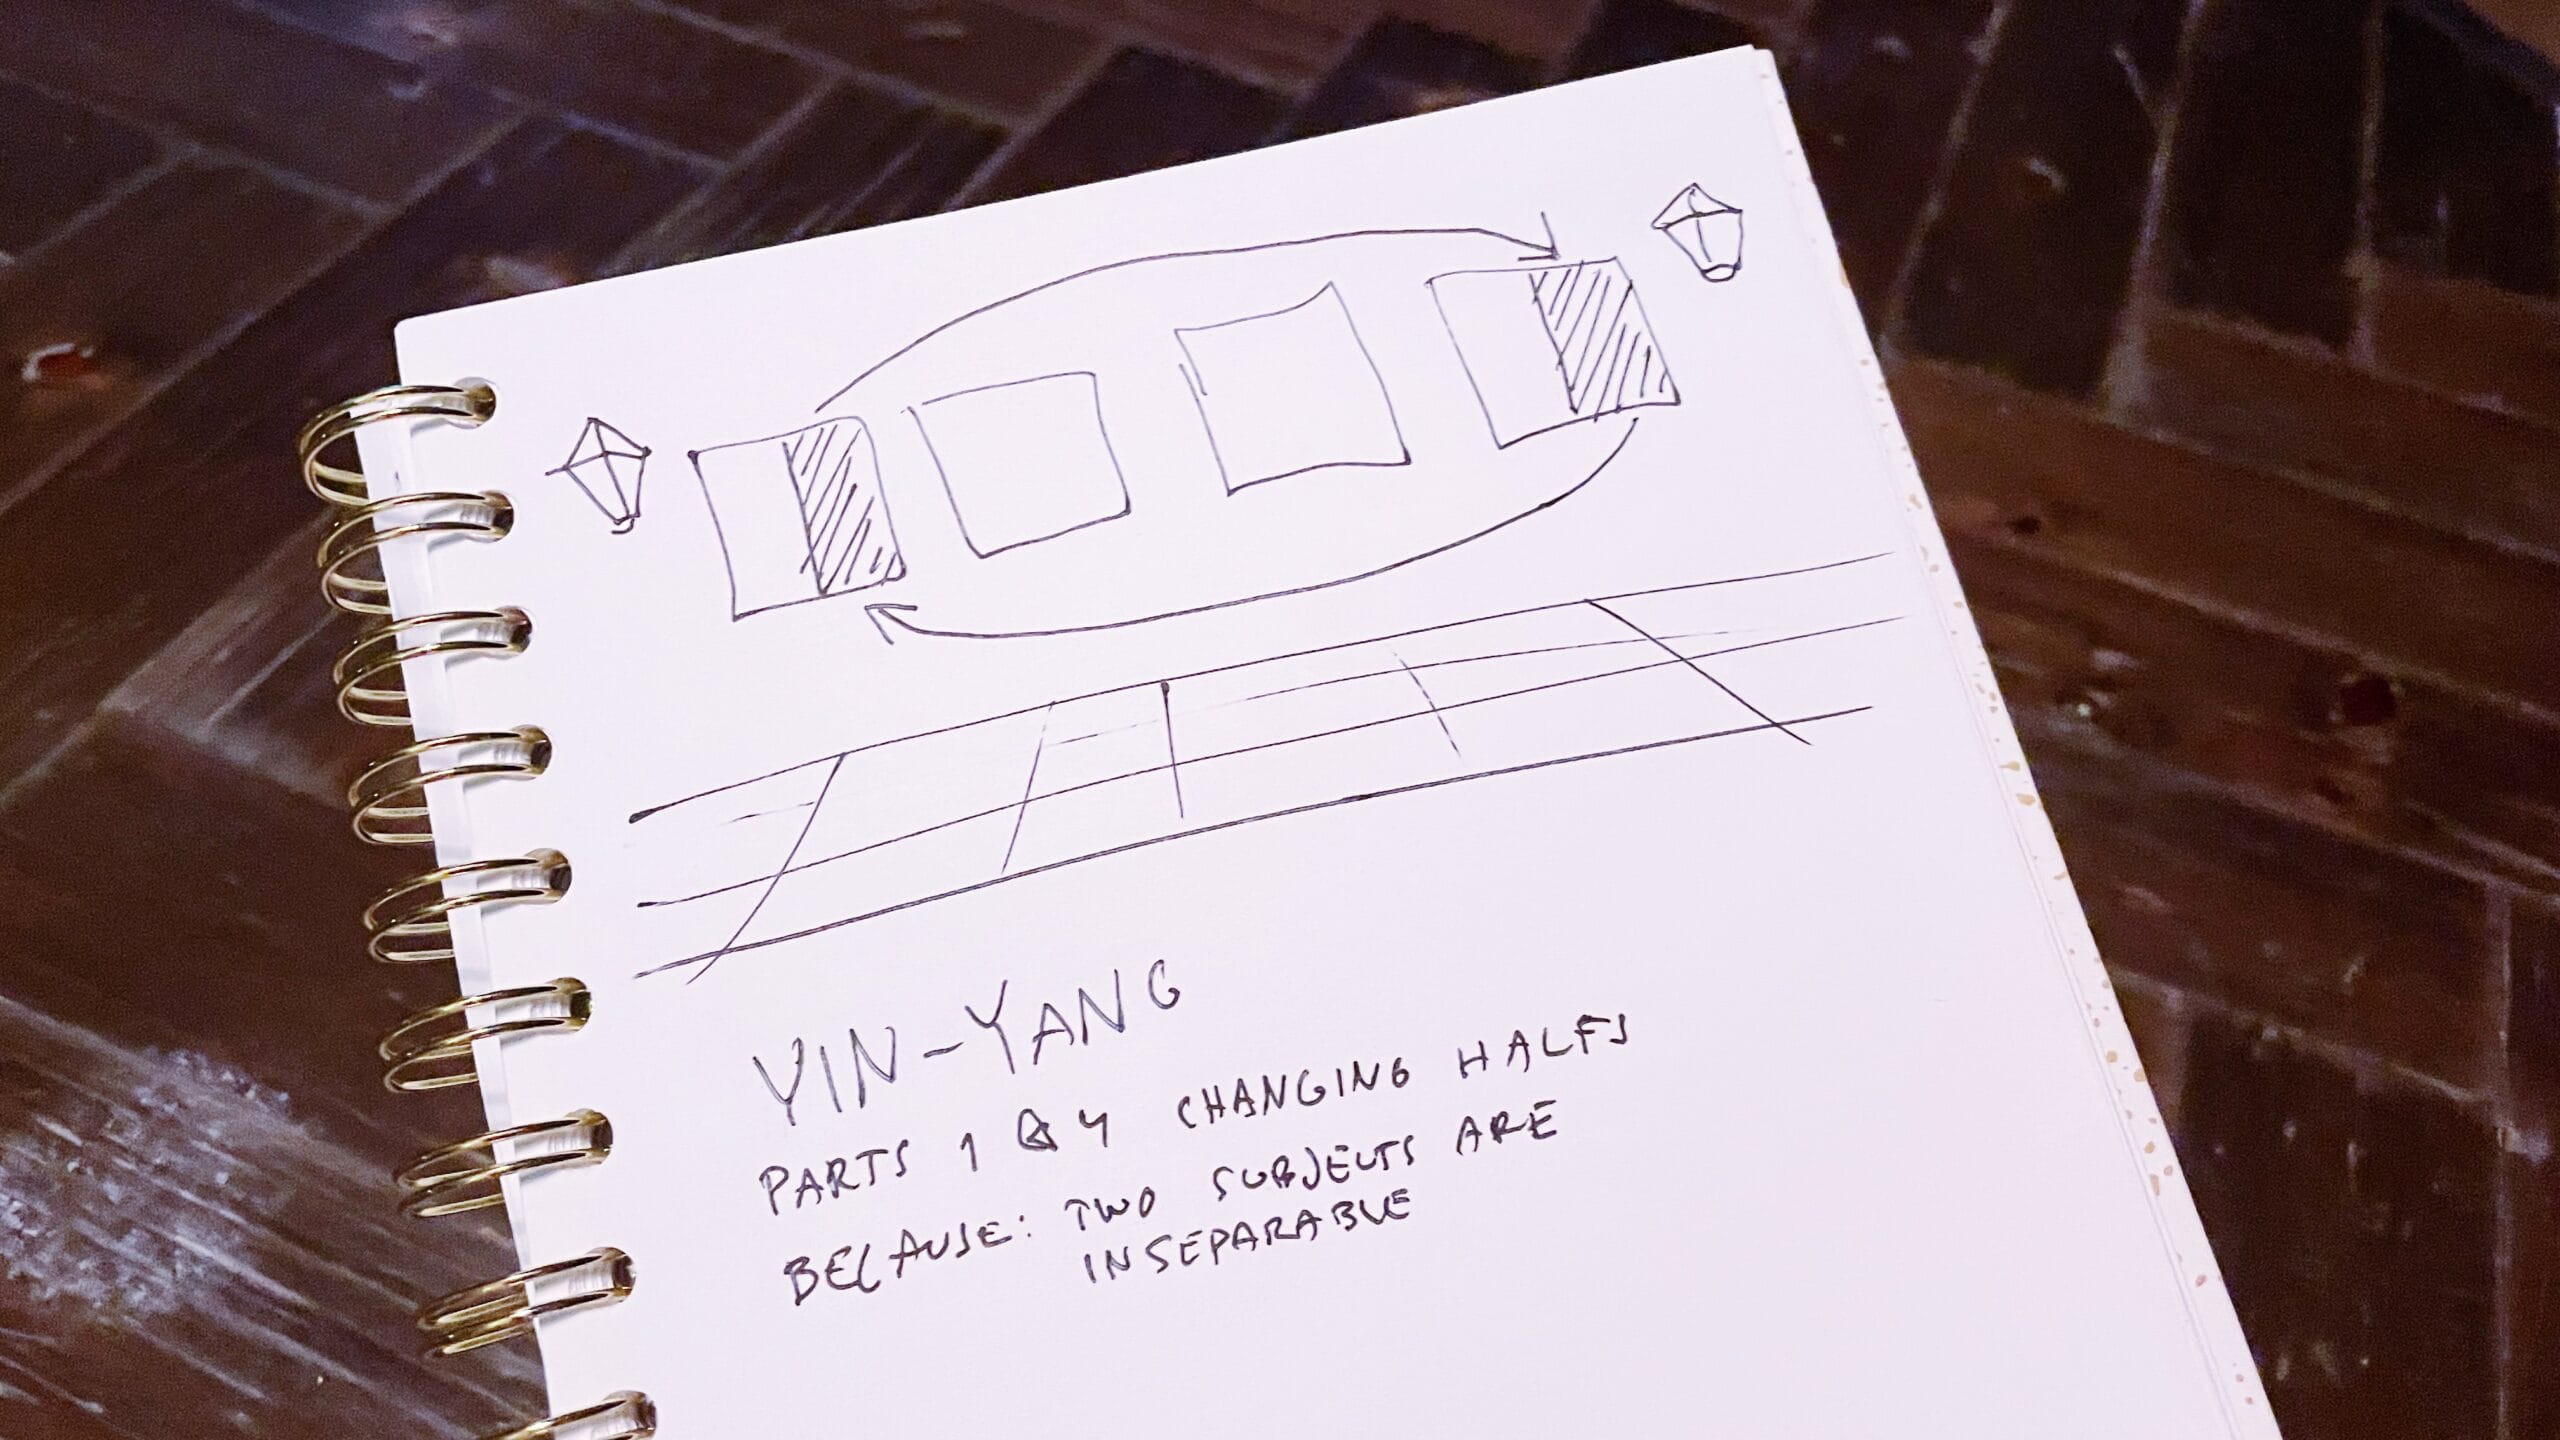 YIN-YANG
PARTS 1 & 4 CHANGING HALFS
BECAUSE: TWO SUBJECTS ARE
INSEPARABLE